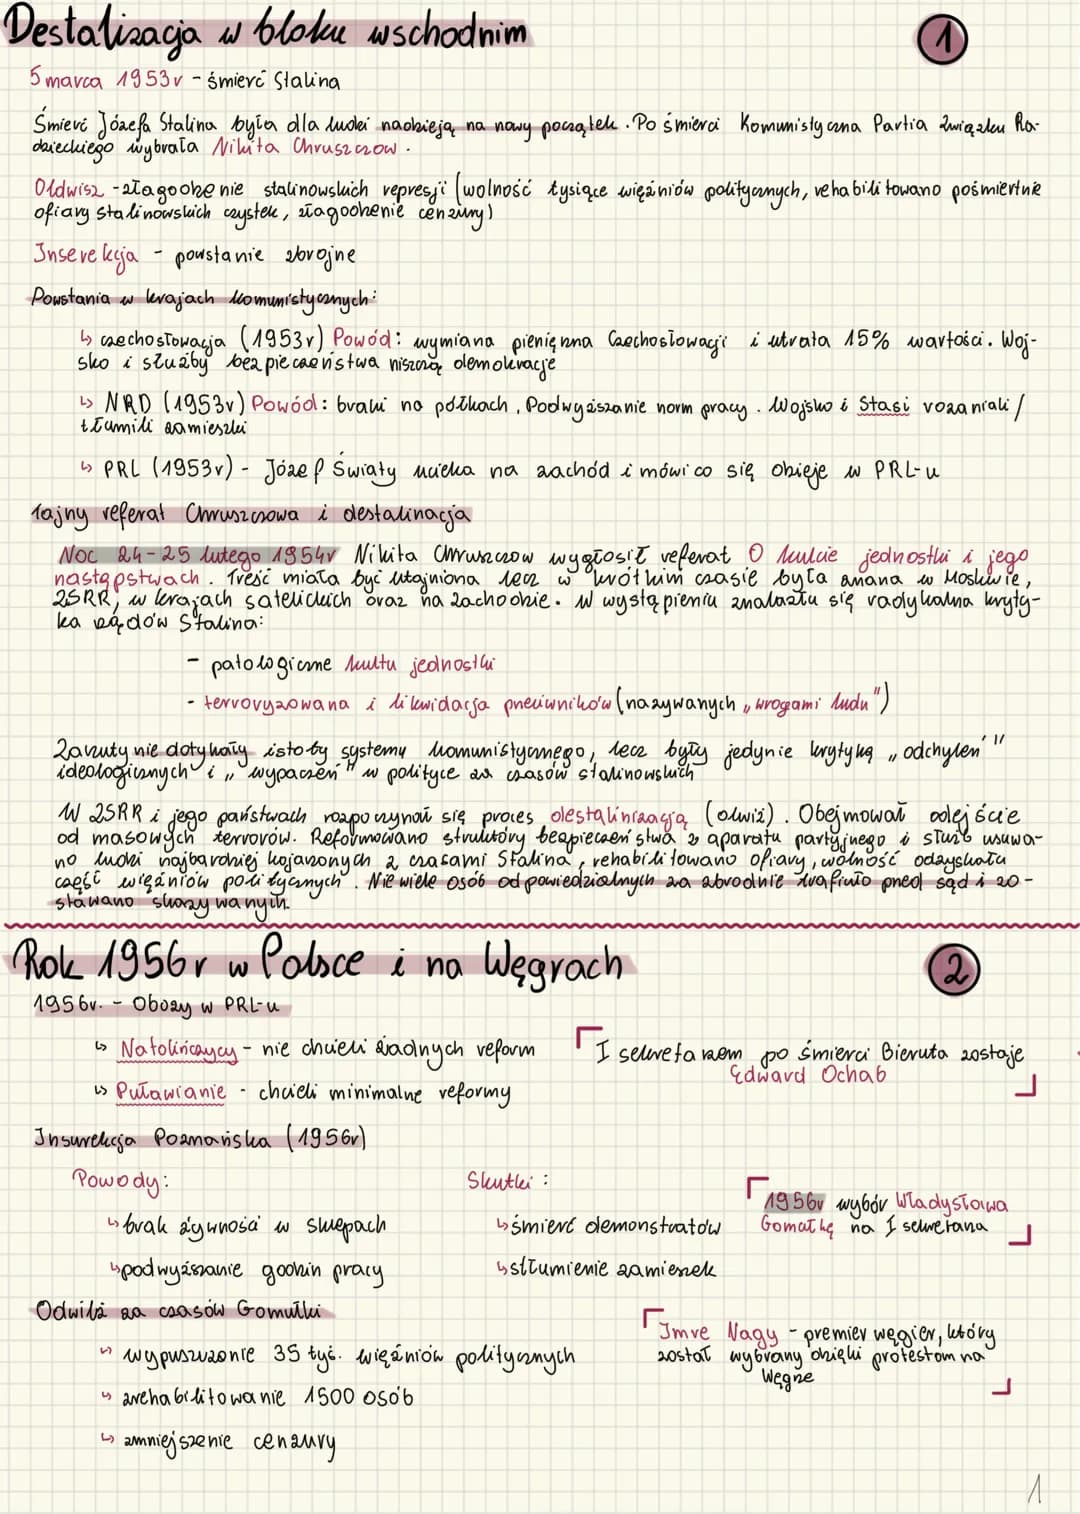 Destalizacja w bloku wschodnim
1
5 marca 1953r - śmierć Stalina
Śmierć Józefa Stalina była dla ludzi nadzieją na nowy początek. Po śmierci Komunistyczna Partia Związku Ra-
dzieckiego wybrała Nikita Chruszczow.
Oldwisz - złagodzenie stalinowskich represji (wolność tysiące więźniów politycznych, rehabilitowano pośmiertnie
ofiary stalinowskich czystek, złagodzenie cenzury)
Inserekcja - powstanie zbrojne
Powstania w krajach komunistycznych:
↳ czechosłowacja (1953r) Powód: wymiana pieniężna Czechosłowacji i utrata 15% wartości. Woj-
sko i służby bezpieczeństwa niszczą demokracje
↳ NRD (1953r) Powód: braki na półkach, Podwyższanie norm pracy. Wojsko i Stasi rozganiali /
tłumili zamieszki
↳ PRL (1953r) - Józef Światy ucieka na zachód i mówi co się dzieje w PRL-u
tajny referat Chruszczowa i destalinacja
Noc 24-25 lutego 1954r Nikita Chruszczow wygłosił referat O kulcie jednostki i jego
następstwach. Treść miała być utajniona lecz w krótkim czasie była znana w Moskwie,
ZSRR, w krajach satelickich oraz na zachodzie. W wystąpieniu znalazła się radykalna kryty-
ka rządów Stalina:
- patologiczne kultu jednostki
- terroryzowana i likwidacja przeciwników (nazywanych „wrogami ludu")
Zarzuty nie dotykały istoty systemy komunistycznego, lecz były jedynie krytyką „odchyleń"
ideologicznych i „wypaczeń" w polityce za czasów stalinowskich
W ZSRR i jego państwach rozpoczynał się proces destalinizacją (odwiż). Obejmował odejście
od masowych terrorów. Reformowano struktóry bezpieczeństwa z aparatu partyjnego i służb usuwa-
no ludzi najbardziej kojarzonych z czasami Stalina, rehabilitowano ofiary, wolność odzyskała
część więźniów politycznych. Niewiele osób odpowiedzialnych za zbrodnie trafiuło przed sąd i zo-
stawano skazywanych.
Rok 1956r w Polsce i na Węgrach
2
1956r. - Obozy w PRL-u
↳ Natolińczycy - nie chcieli żadnych reform
I sekretarzem po śmierci Bieruta zostaje
Edward Ochab
↳ Puławianie - chcieli minimalne reformy
Insurekcja Poznańska (1956r)
Powody:
Skutki:
1956r wybór Władysłowa
Gomułkę na I sekretarza
↳ brak żywności w sklepach
↳ śmierć demonstratów
↳ podwyższanie godzin pracy
↳ stłumienie zamieszek
Odwilż za czasów Gomułki
Imre Nagy - premier węgier, który
został wybrany dzięki protestom na
Węgrze
↳ wypuszczonie 35 tyś. więźniów politycznych
↳ zrehabilitowanie 1500 osób
↳ zmniejszenie cenzury
1